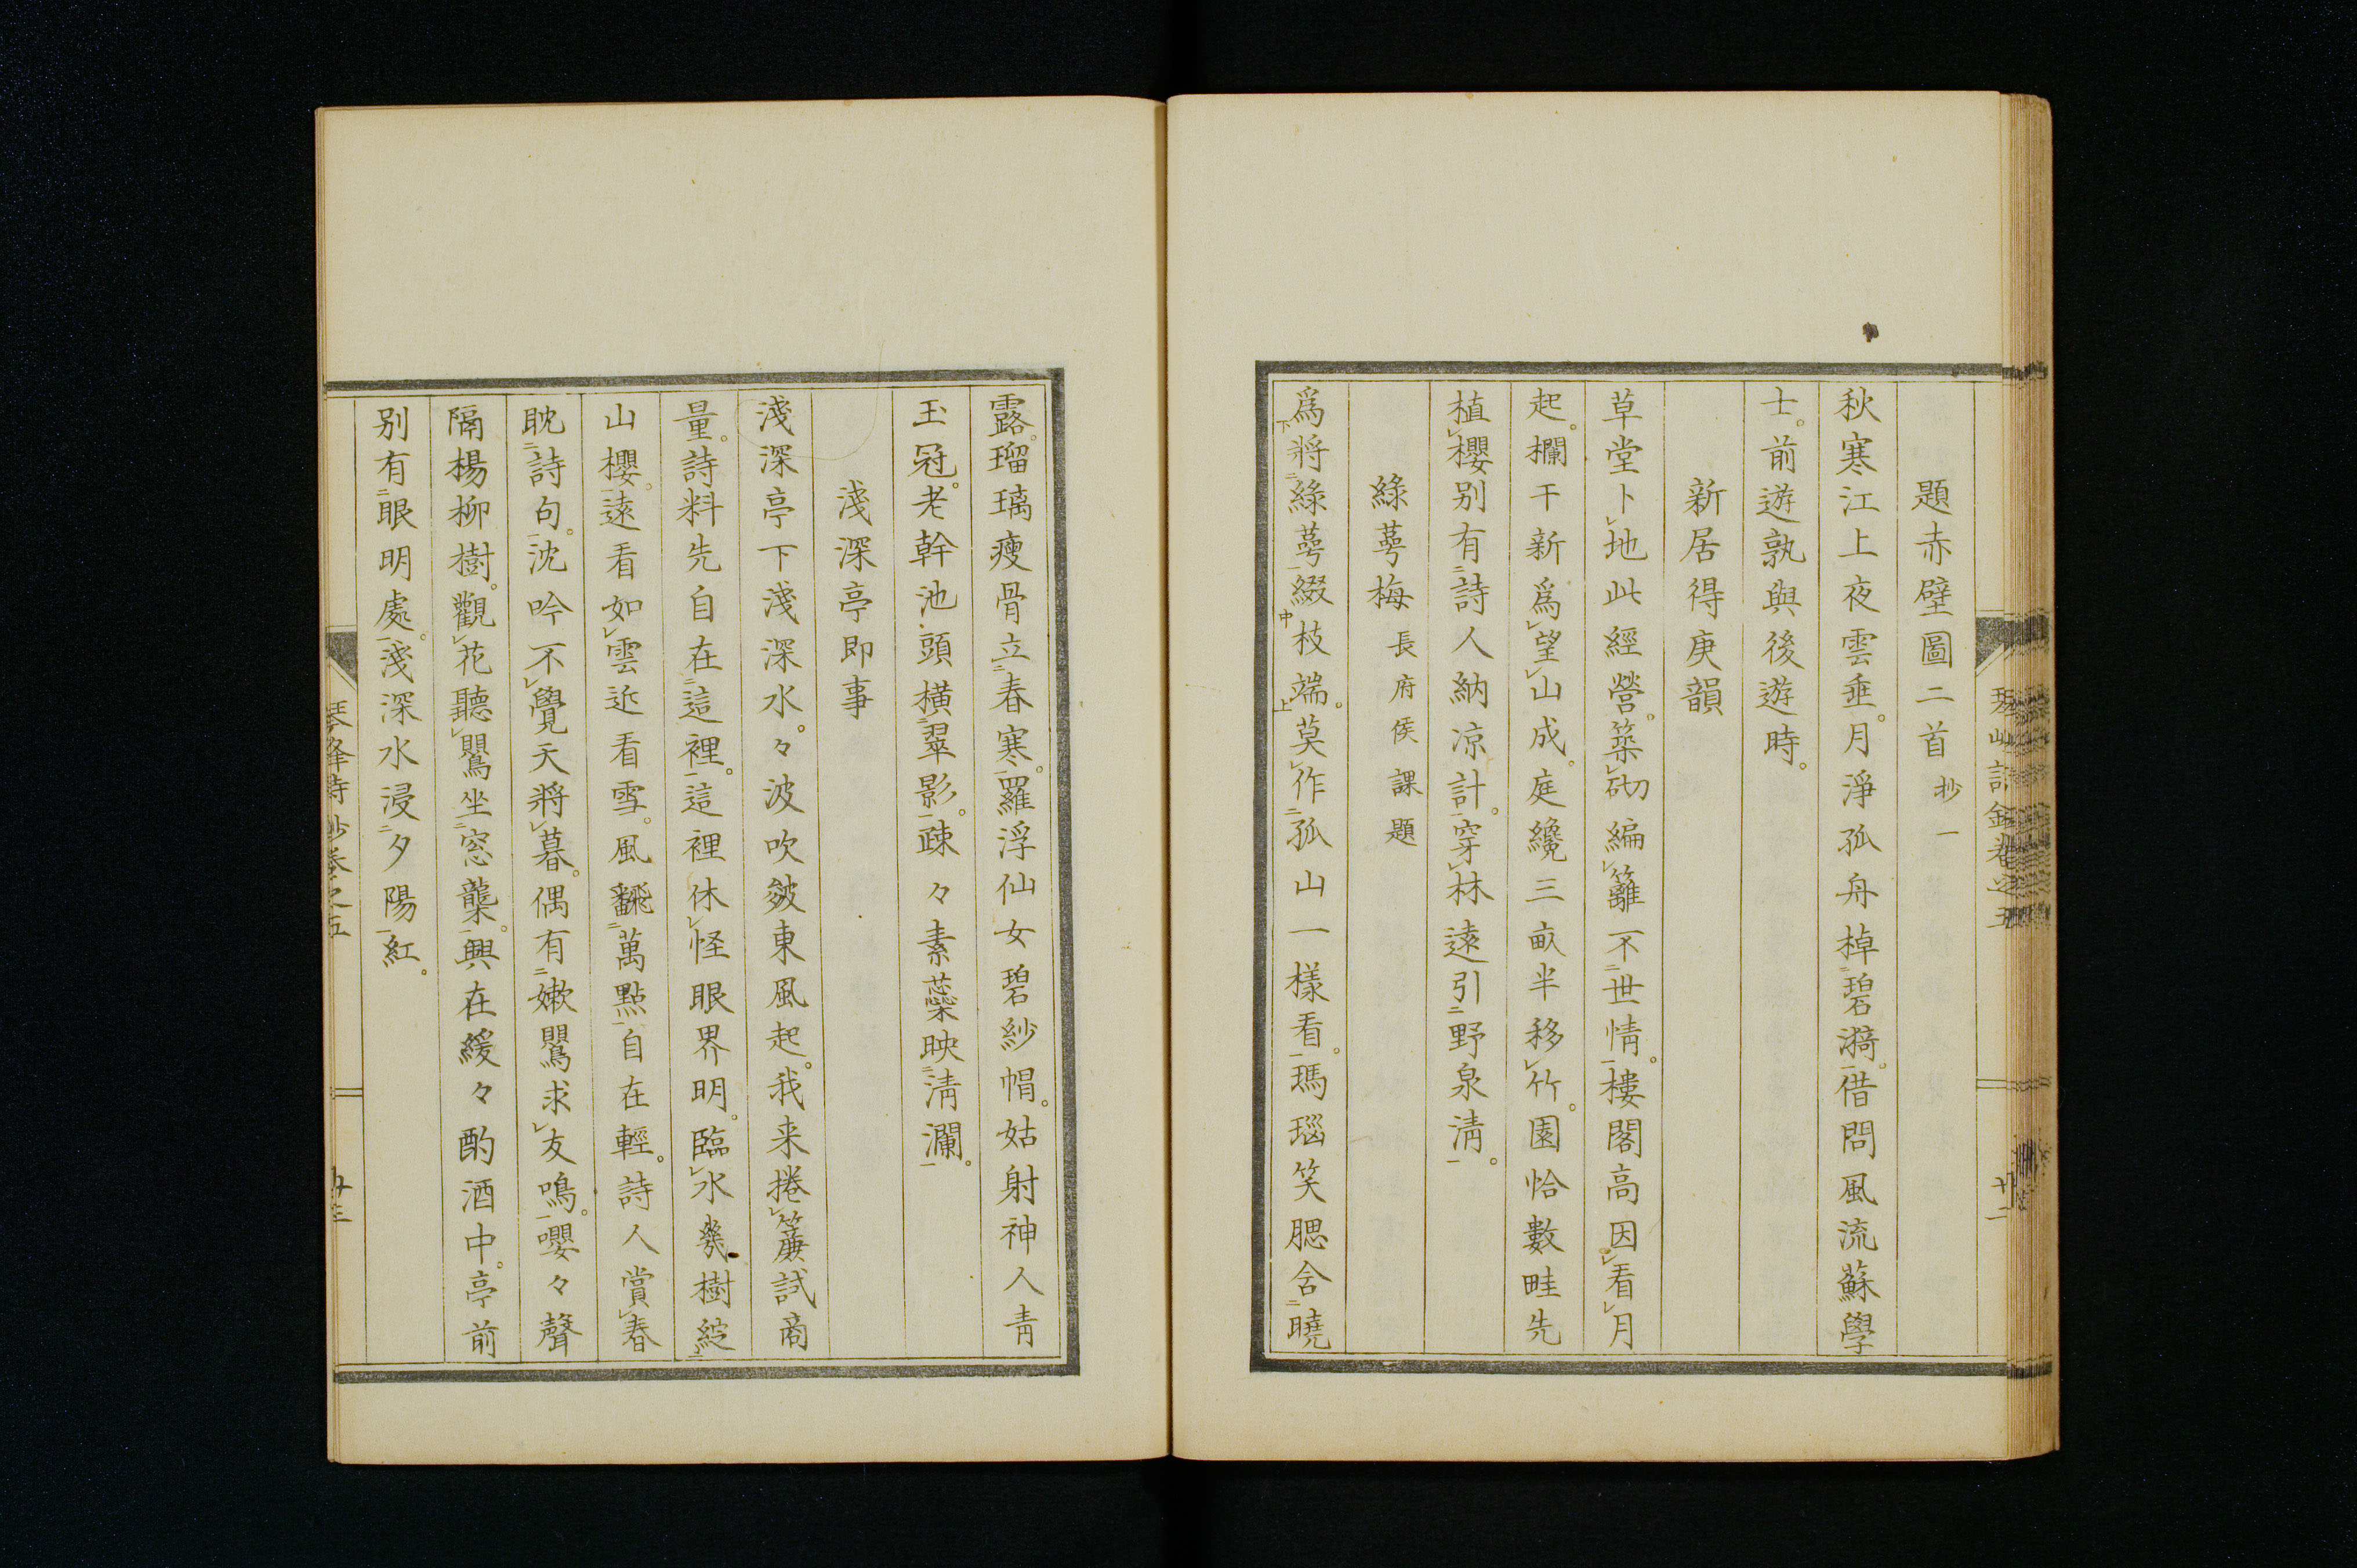 題赤壁圖二首 抄一
秋寒江上夜雲垂。月淨孤舟棹碧漪。借問風流蘇學
士。前遊孰與後遊時。
新居得庚韻
草堂卜地此經營。築砌編籬不世情。樓閣高因看月
起。欄干新爲望山成。庭纔三畝半移竹。園恰數畦先
植櫻別有詩人納凉計。穿林遠引野泉淸。
綠萼梅 長府侯課題
爲將綠萼綴枝端。莫作孤山一樣看。瑪瑙笑腮含曉
露。瑠璃瘦骨立春寒。羅浮仙女碧紗帽。姑射神人靑
玉冠。老幹池頭橫翠影。疎々素蘂映淸瀾。
淺深亭即事
淺深亭下淺深水。々波吹皴東風起。我来捲簾試商
量。詩料先自在這裡。這裡休怪眼界明。臨水幾樹綻
山櫻。遠看如雲近看雪。風飜萬點自在輕。詩人賞春
耽詩句。沈吟不覺天將暮。偶有嫩鸎求友鳴。嚶々聲
隔楊柳樹。觀花聽鸎坐窓蘢。興在緩々酌酒中。亭前
別有眼明處。淺深水浸夕陽紅。
琴峯詩抄卷之五